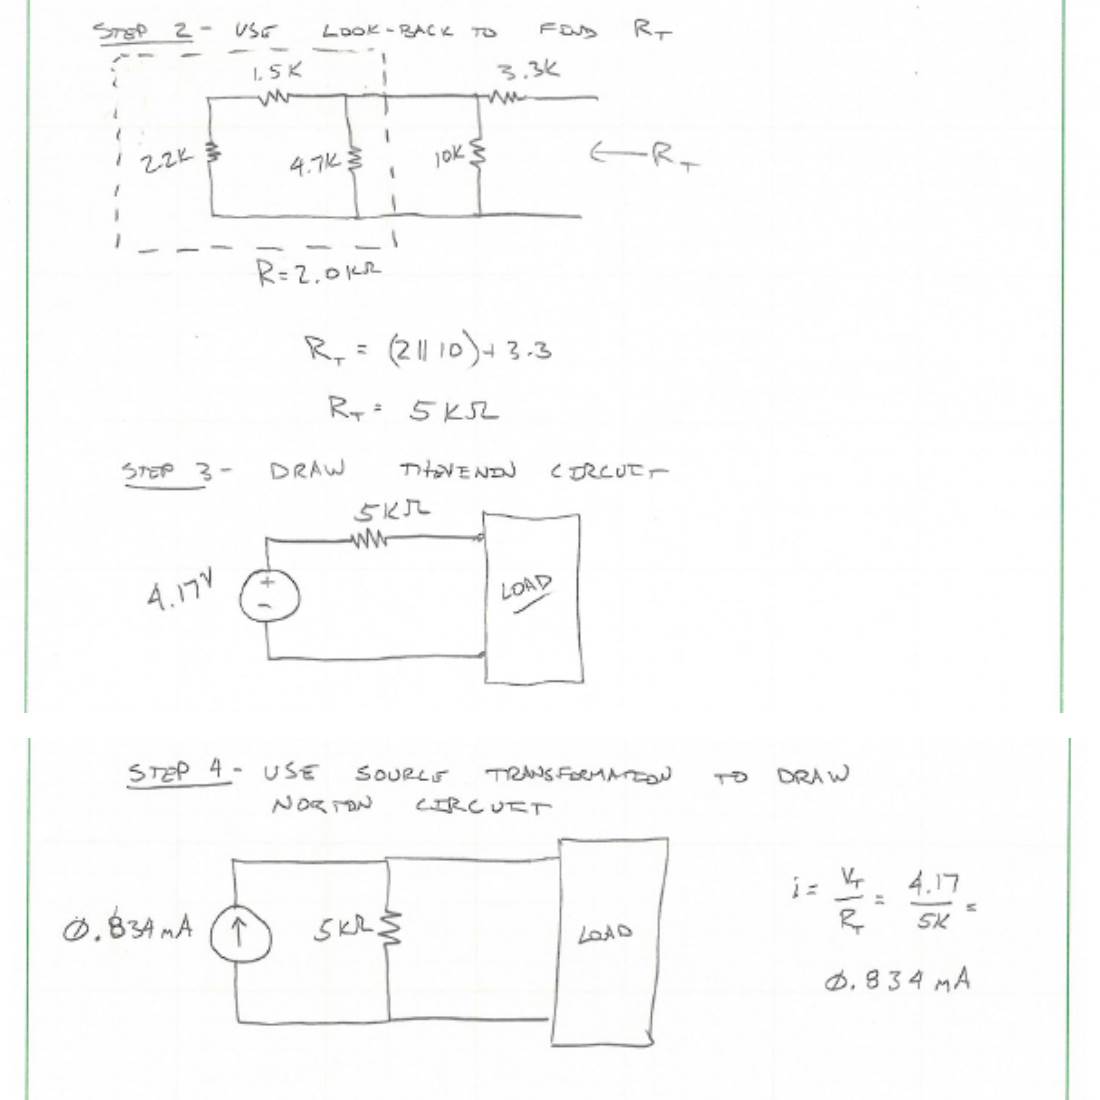 STEP 2 - USE LOOK-BACK TO FIND R_T
1.5K
3.3K
2.2K
4.7K
10K
← R_T
R=2.0KΩ
R_T = (2||10)+3.3
R_T = 5KΩ
STEP 3 - DRAW THEVENIN CIRCUIT
5KΩ
4.17V
+
-
LOAD
STEP 4 - USE SOURCE TRANSFORMATION TO DRAW
NORTON CIRCUIT
0.834mA
↑
5KΩ
LOAD
i = V_T/R_T = 4.17/5K =
0.834mA